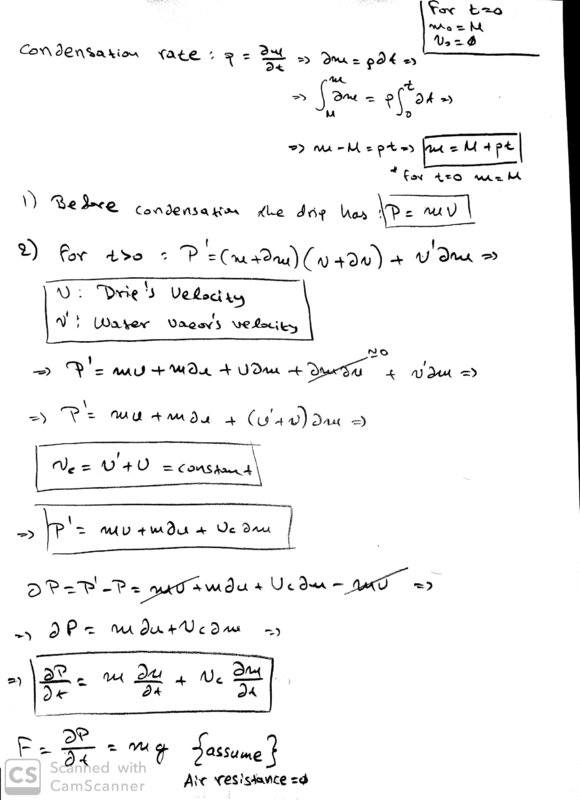 For t=0
m₀ = M
v₀ = 0
Condensation rate : ρ = ∂m/∂t => ∂m = ρ∂t =>
=> ∫_M^m ∂m = ρ∫_0^t ∂t =>
=> m - M = ρt => m = M + ρt
* for t=0 m=M
1) Before condensation the drip has : P = mv
2) For t>0 : P' = (m+∂m)(v+∂v) + v'∂m =>
v : Drip's Velocity
v' : Water vapor's velocity
=> P' = mv + m∂v + v∂m + ∂m∂v + v'∂m =>
=> P' = mv + m∂v + (v'+v)∂m =>
vc = v' + v = constant
=> P' = mv + m∂v + vc ∂m
∂P = P' - P = mv + m∂v + vc∂m - mv =>
=> ∂P = m∂v + vc∂m =>
=> ∂P/∂t = m ∂v/∂t + vc ∂m/∂t
F = ∂P/∂t = mg {assume}
Air resistance = 0
CS Scanned with
CamScanner